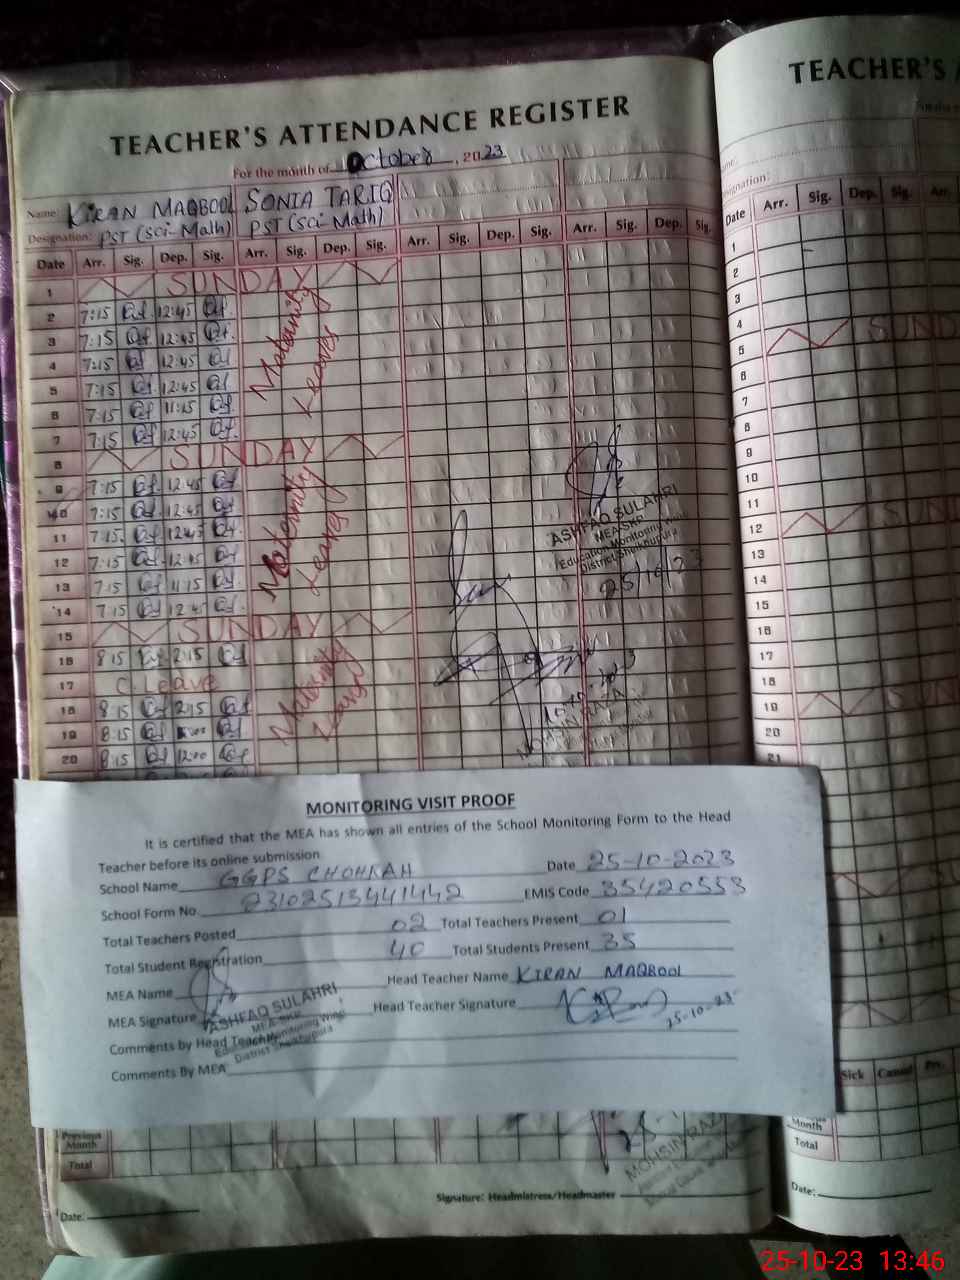 TEACHER'S ATTENDANCE REGISTER
For the month of October, 2023
Name: KIRAN MAQBOOL SONIA TARIQ
Designation: PST (Sci-Math) PST (Sci-Math)
Date Arr. Sig. Dep. Sig. Arr. Sig. Dep. Sig. Arr. Sig. Dep. Sig. Arr. Sig. Dep. Sig.
1 SUNDAY
2 7:15 12:45
3 7:15 12:45
4 7:15 12:45
5 7:15 12:45
6 7:15 11:15
7 7:15 12:45
Maternity Leaves
8 SUNDAY
9 7:15 12:45
10 7:15 12:45
11 7:15 12:45
12 7:15 12:45
13 7:15 11:15
14 7:15 12:45
Maternity Leaves
15 SUNDAY
16 8:15 2:15
17 C. Leave
18 8:15 2:15
19 8:15
20 8:15 12:00
Maternity
ASHFAQ SULAHRI
MEA-SKP
Education Monitoring Wing
District Sheikhupura
25/10/23
MOHSIN RAZA
MONITORING VISIT PROOF
It is certified that the MEA has shown all entries of the School Monitoring Form to the Head
Teacher before its online submission
Date 25-10-2023
School Name GGPS CHOHKAH
EMIS Code 35420553
School Form No. 23102513441442
Total Teachers Posted 02 Total Teachers Present 01
Total Student Registration 40 Total Students Present 35
MEA Name Head Teacher Name KIRAN MAQBOOL
MEA Signature Head Teacher Signature
25-10-23
ASHFAQ SULAHRI
MEA-SKP
Education Monitoring Wing
District Sheikhupura
Comments by Head Teacher
Comments By MEA
Previous Month
Total
MOHSIN RAZA
Signature: Headmistress/Headmaster
Date:
TEACHER'S
Designation:
Date Arr. Sig. Dep. Sig. Arr.
1
2
3
4
5
6
7
8
9
10
11
12
13
14
15
16
17
18
19
20
21
Sick Casual Pri.
Month
Total
Date:
25-10-23 13:46